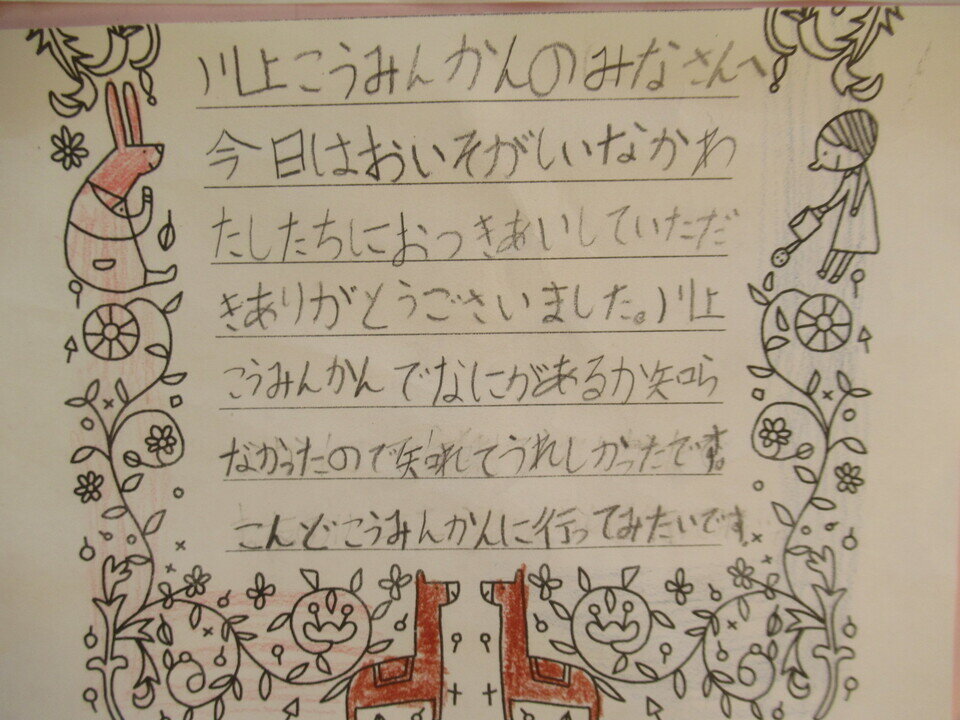 川上こうみんかんのみなさんへ
今日はおいそがしいなかわ
たしたちにおつきあいしていただ
きありがとうございました。川上
こうみんかんでなにがあるか知ら
なかったので知れてうれしかったです。
こんどこうみんかんに行ってみたいです。